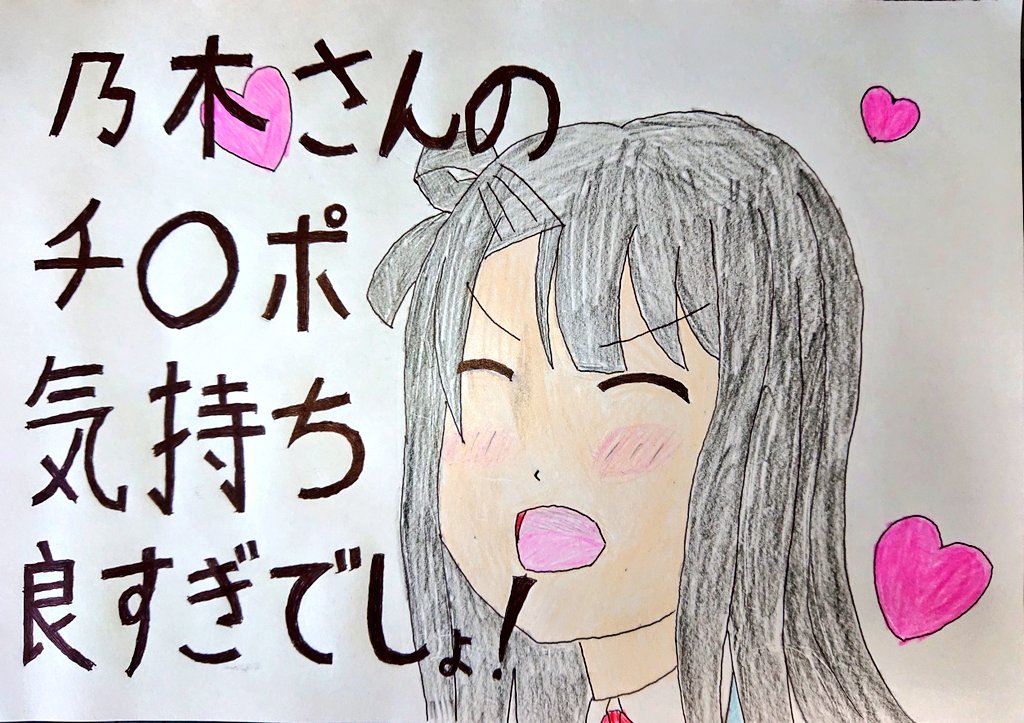 乃木さんの
チ〇ポ
気持ち
良すぎでしょ!